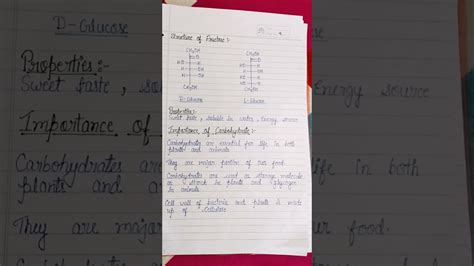 Structure of Fructose:-
CH2OH
C=O
CH2OH
CH2OH
C=O
CH2OH
D-Glucose
L-Glucose
Properties:-
Sweet taste, soluble in water, Energy source
Importance of Carbohydrate:-
Carbohydrates are essential for life in both
plants and animals
They are major portion of our food.
Carbohydrates are used as storage molecule
as starch in plants and glycogen
in animals.
Cell wall of bacteria and plants is made
up of Cellulose
D-Glucose
Properties:-
Sweet taste, sol
Energy source
Importance of
Carbohydrates are
life in both
plants and a
They are major
our food.
Carbohydrates are
molecule